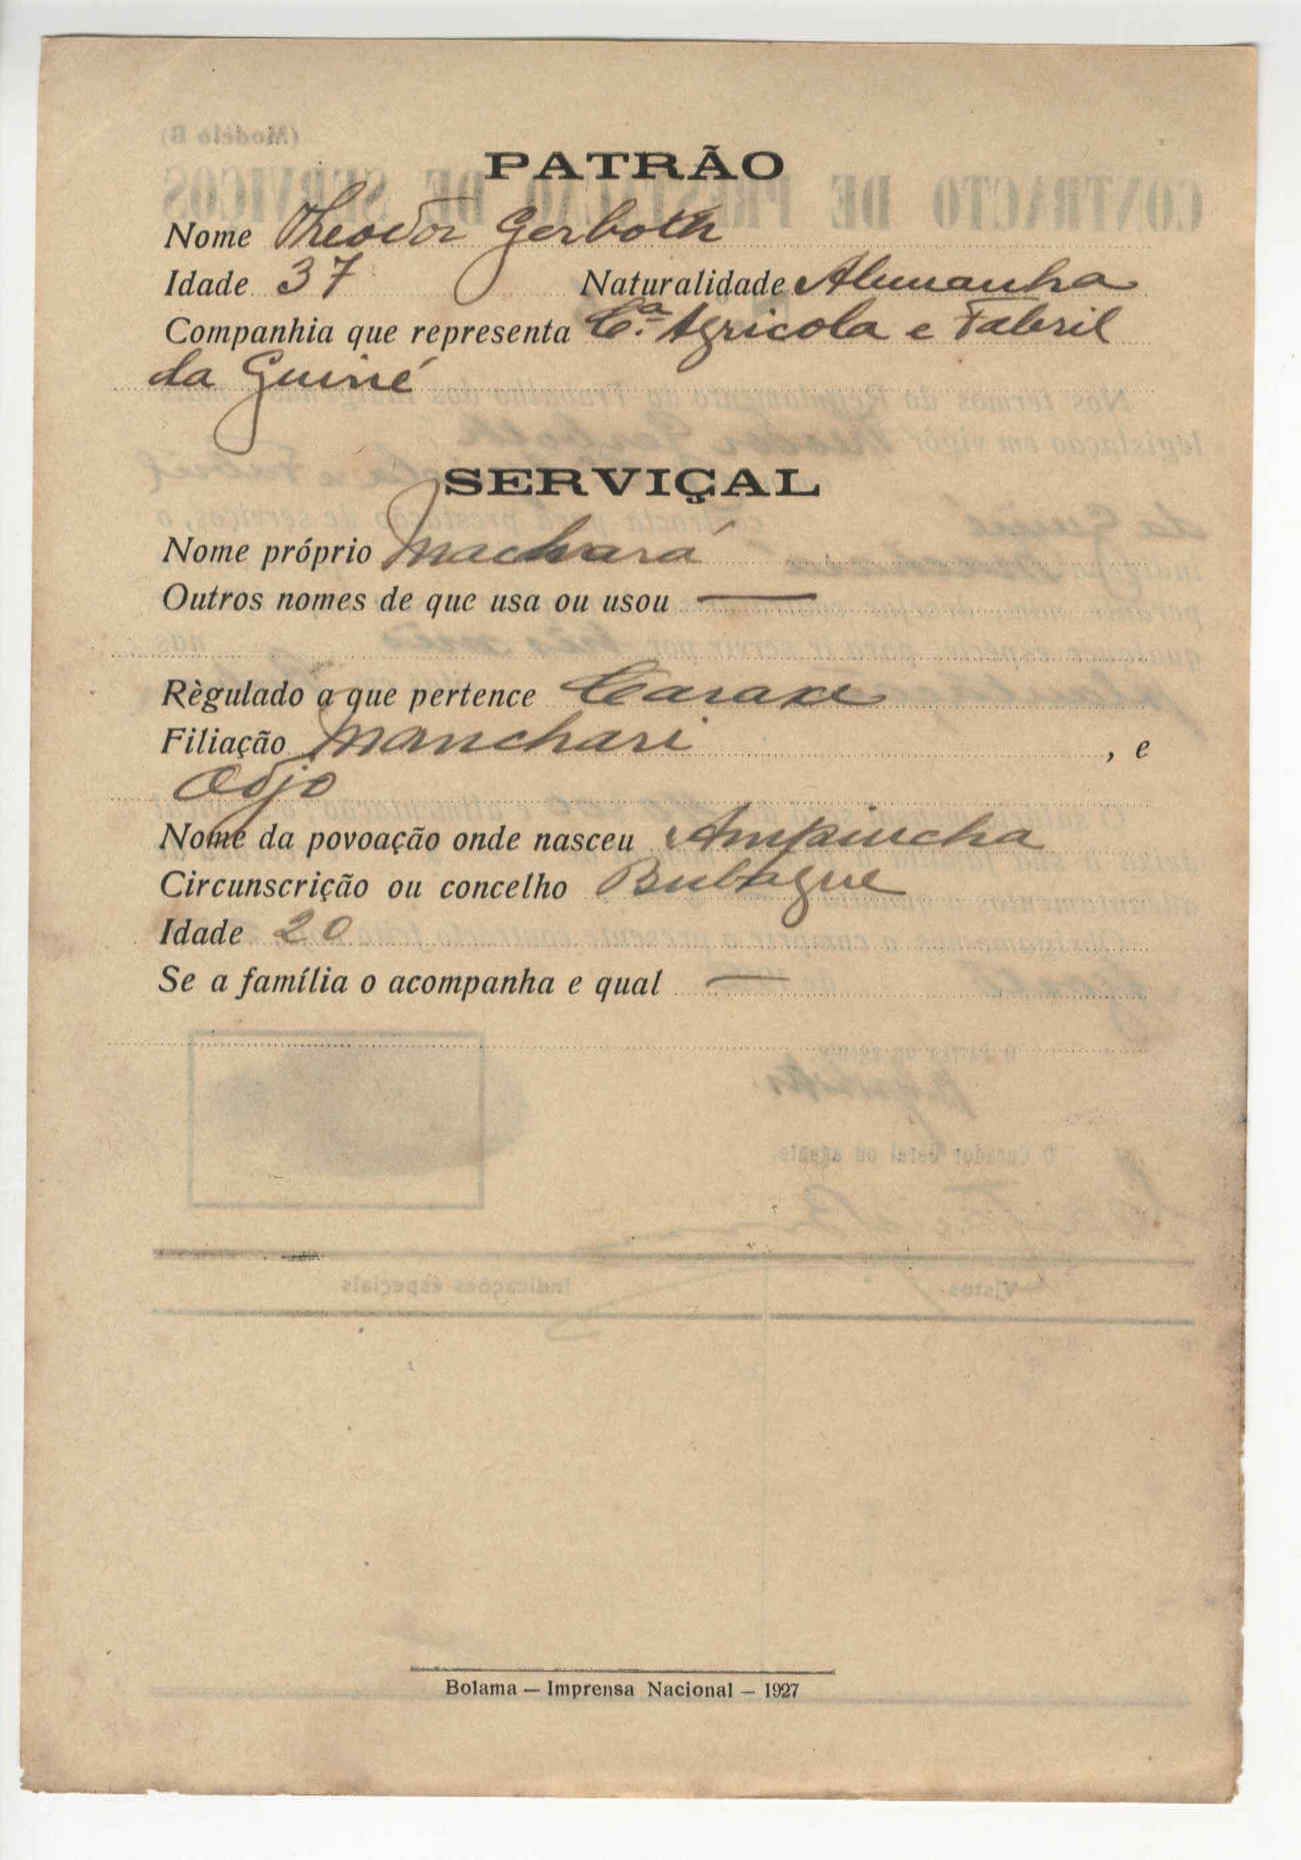 PATRÃO
Nome Theodor Gerboth
Idade 37 Naturalidade Alemanha
Companhia que representa Cª. Agricola e Fabril
da Guiné
SERVIÇAL
Nome próprio Machará
Outros nomes de que usa ou usou —
Règulado a que pertence Caraxe
Filiação Manchari , e
Odjo
Nome da povoação onde nasceu Ampincha
Circunscrição ou concelho Bubaque
Idade 20
Se a família o acompanha e qual —
Bolama — Imprensa Nacional — 1927